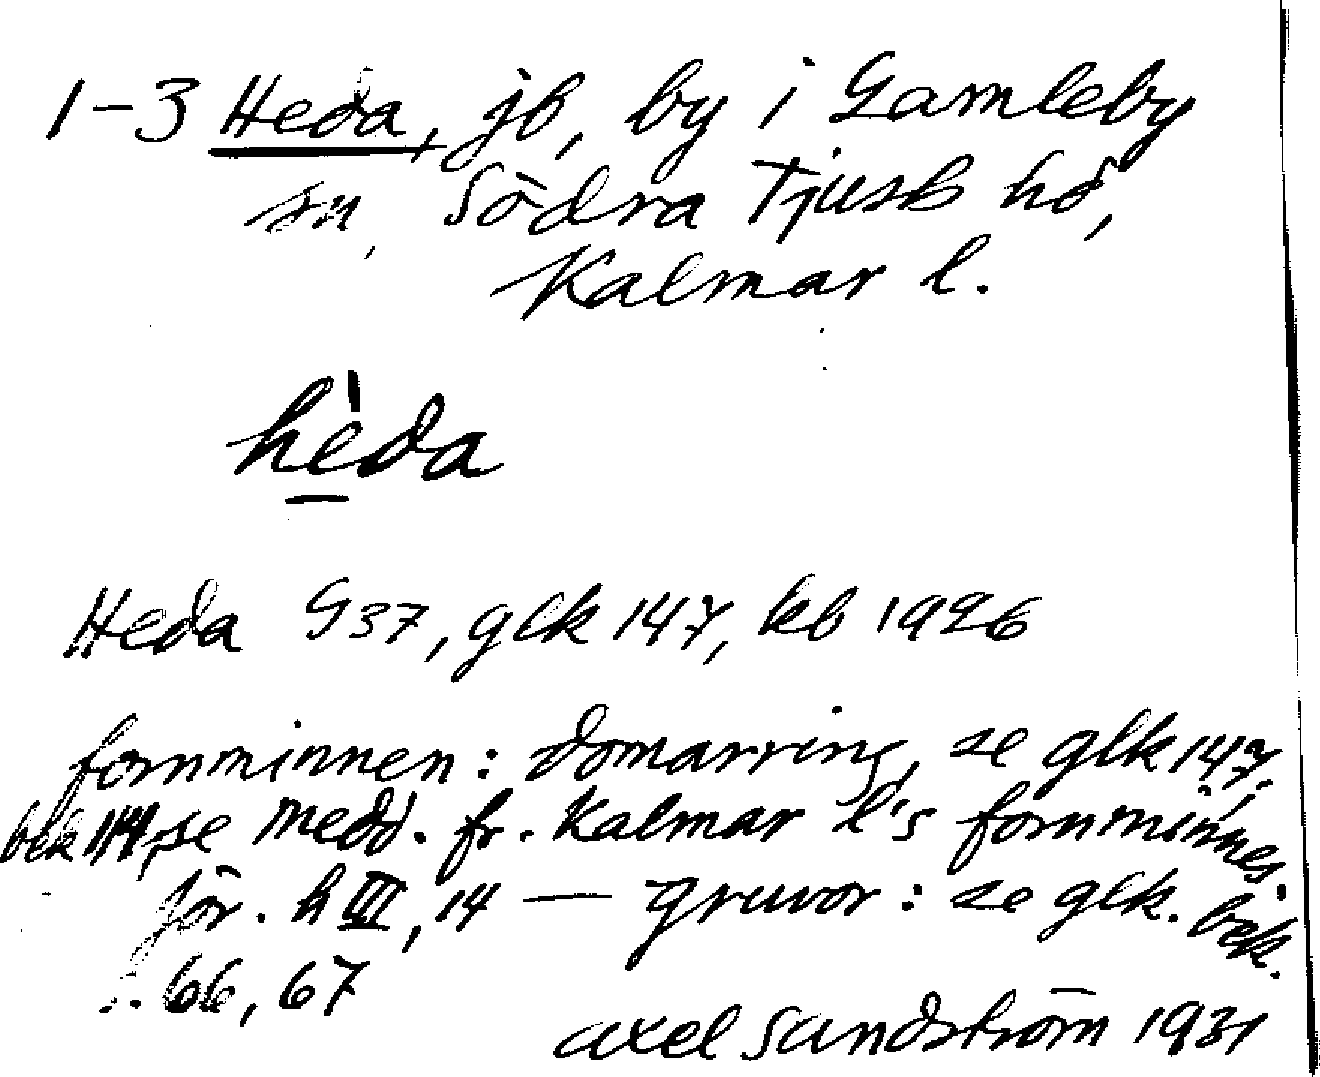 1-3 Heda, jb, by i Gamleby
sn, Södra Tjust hd,
Kalmar l.
hèda
Heda G37, glk 147, kb 1926
fornminnen: domarring, se glk 147,
bek 114, se medd. fr. Kalmar l's fornminnes-
för. h III, 14 — gruvor: se glk. bek.
s. 66, 67
axel Sandström 1931